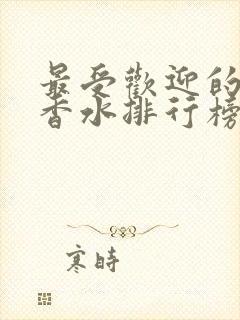 最受歡迎的
香水排行榜
寒時